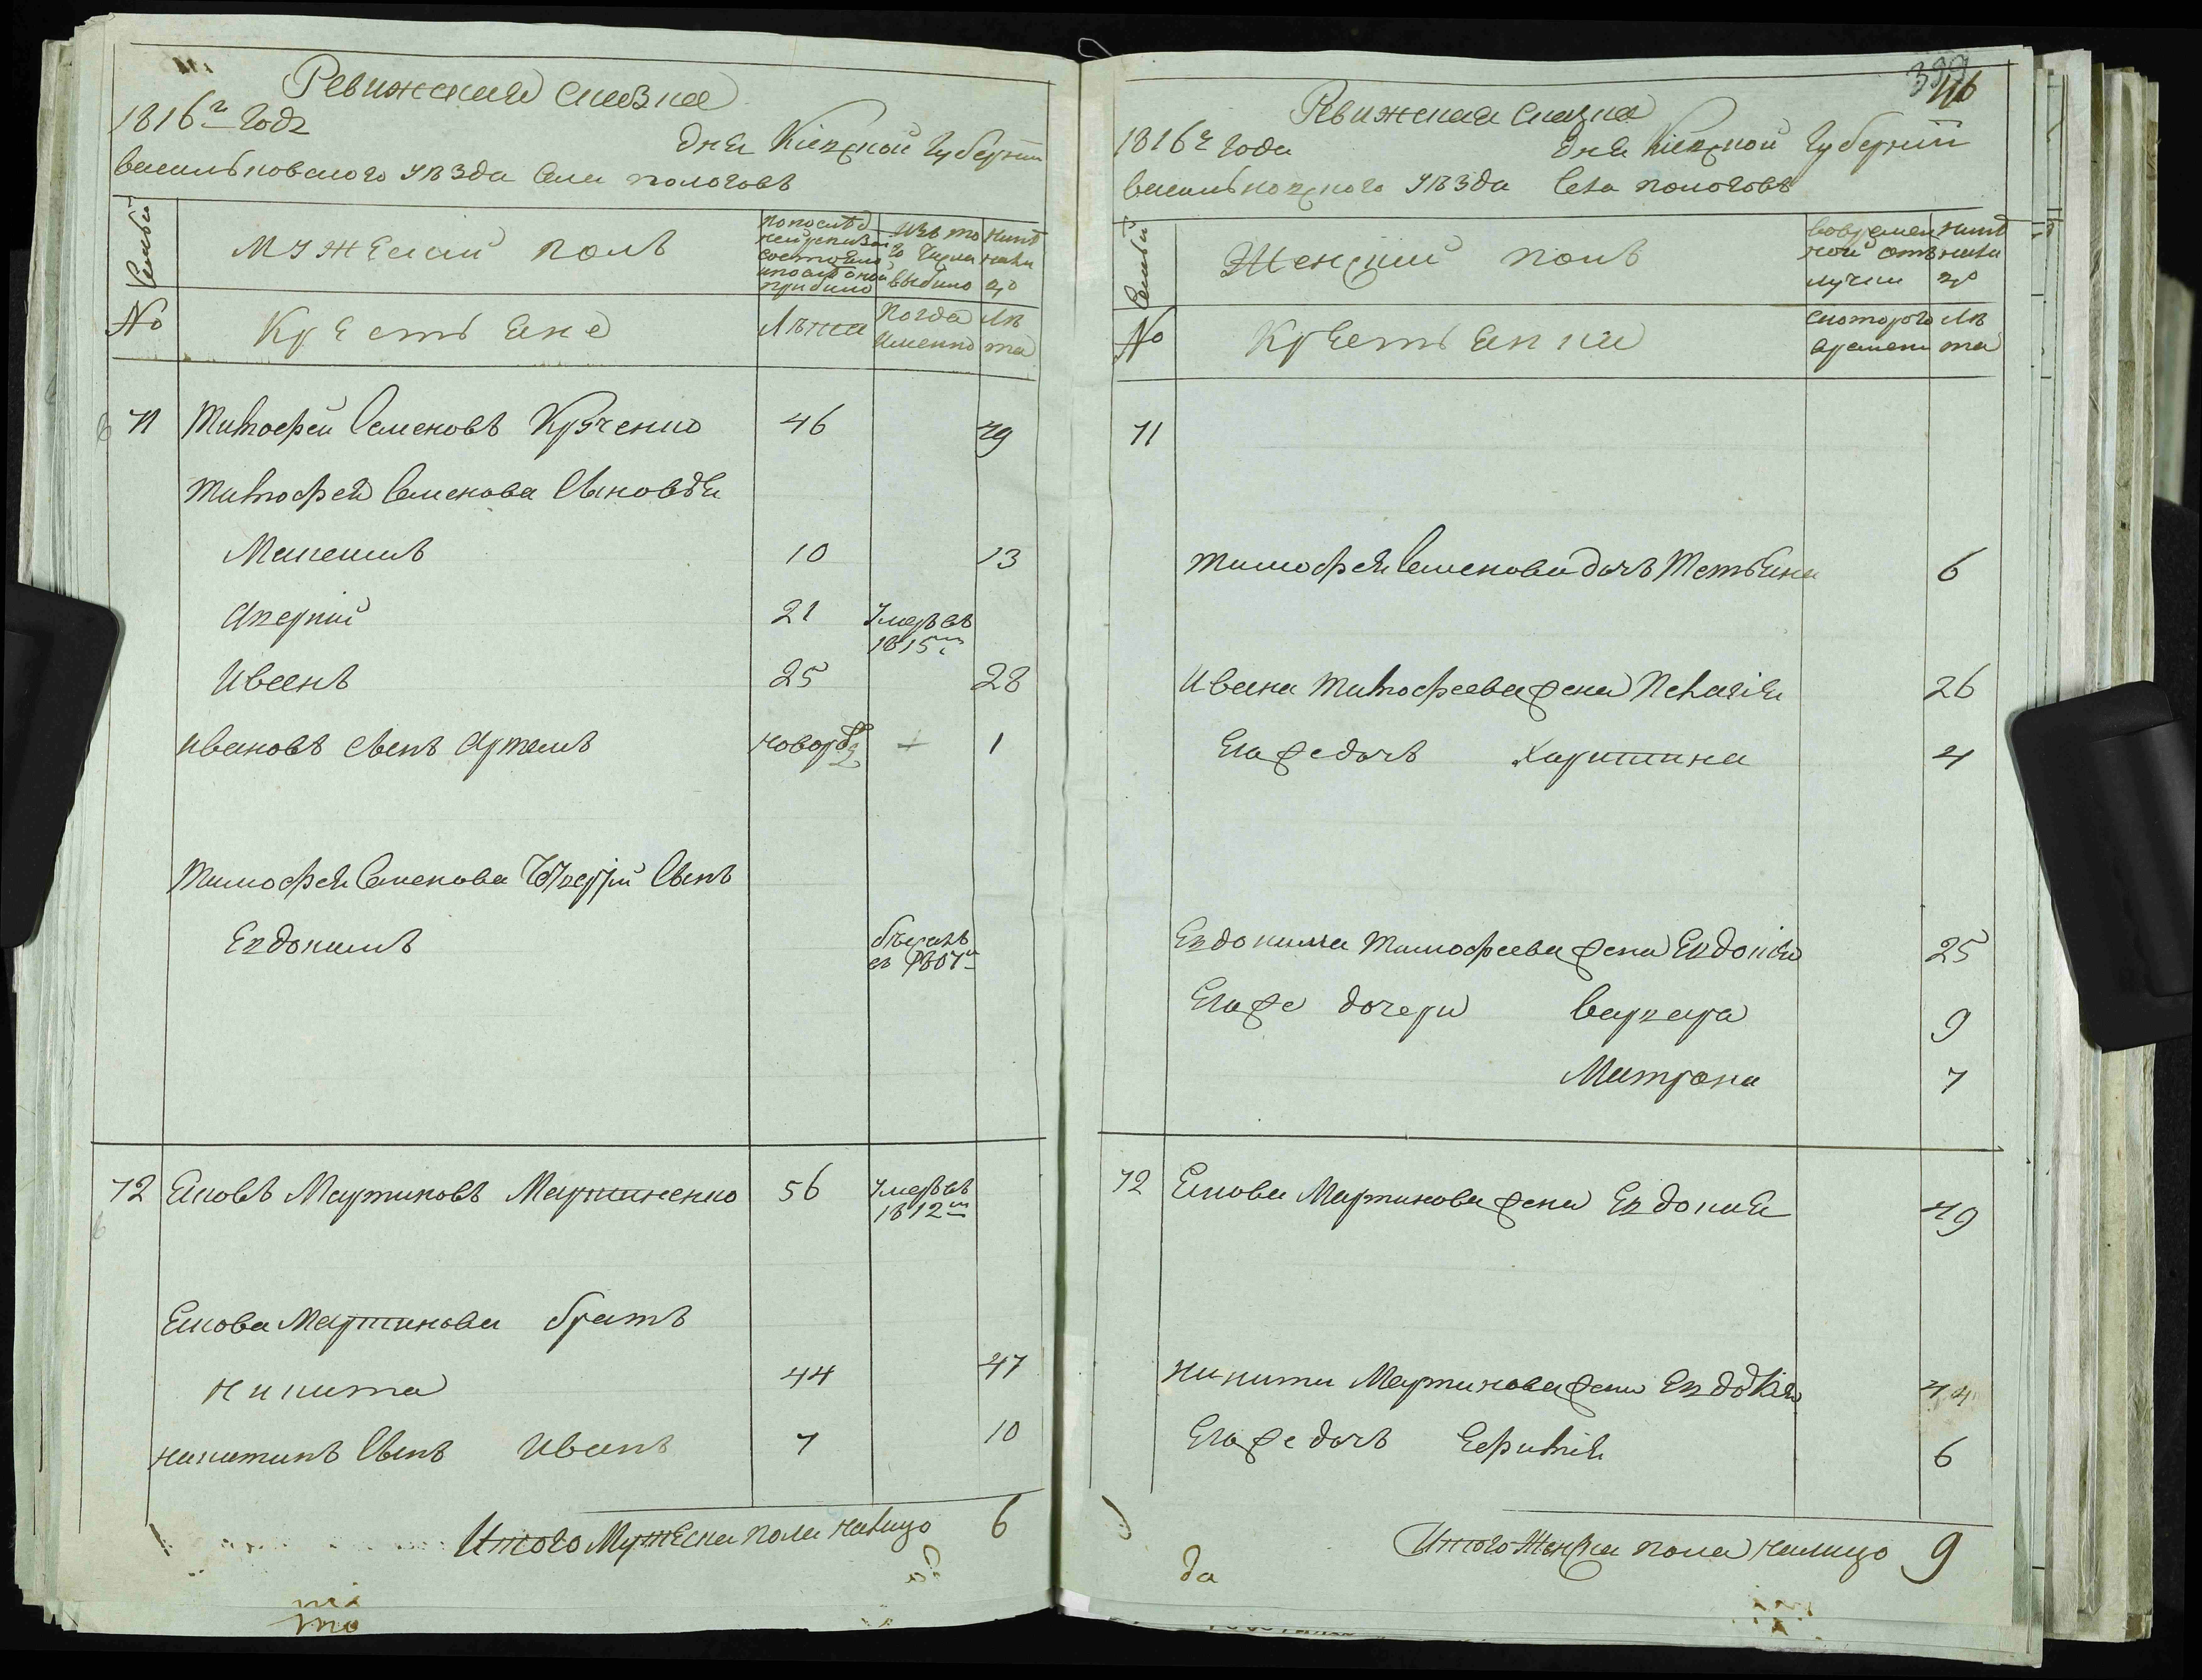 Ревижская сказка
1816г года
дня Кіевской Губерніи
васильковского уѣзда села пологовъ
Семьи
Мужеский полъ
попослѣд
ней ревизіи
состояло
ипослѣ оной
прибыло
Изъ то
го Числа
выбыло
Нынѣ
нали
цо
№
Крестьяне
Лѣта
Когда
Именно
Лѣ
та
71 Тимофей Семеновъ Кученко 46 49
Тимофея Семенова Сыновья
Максимъ 10 13
Аверкий 21 Умеръ въ
1815м
Иванъ 25 28
Ивановъ сынъ Артемъ новорож 1
Тимофея Семенова Сынъ
Евдокимъ бѣжалъ
въ 1807м
72 Яковъ Мартиновъ Мартиненко 56 Умеръ въ
1812м
Якова Мартинова братъ
Никита 44 47
Никитинъ Сынъ Иванъ 7 10
Итого Мужеска пола налицо 6
399
116
Ревижская сказка
1816г года
дня Кіевской Губерніи
васильковского уѣзда села пологовъ
Семьи
Женский полъ
вовремен
ной отъ
лучки
Нынѣ
нали
цо
№
Крестьянки
скоторого
времени
Лѣ
та
71
Тимофея Семенова дочь Тетьяна 6
Ивана Тимофеева жена Пелагія 26
Егоже дочь Харитина 4
Евдокима Тимофеева жена Евдокия 25
Егоже дочери Варвара 9
Матрона 7
72 Якова Мартинова жена Евдокия 49
Никиты Мартинова жена Евдокія 44
Егоже дочь Ефимія 6
Итого Женска пола налицо 9
да